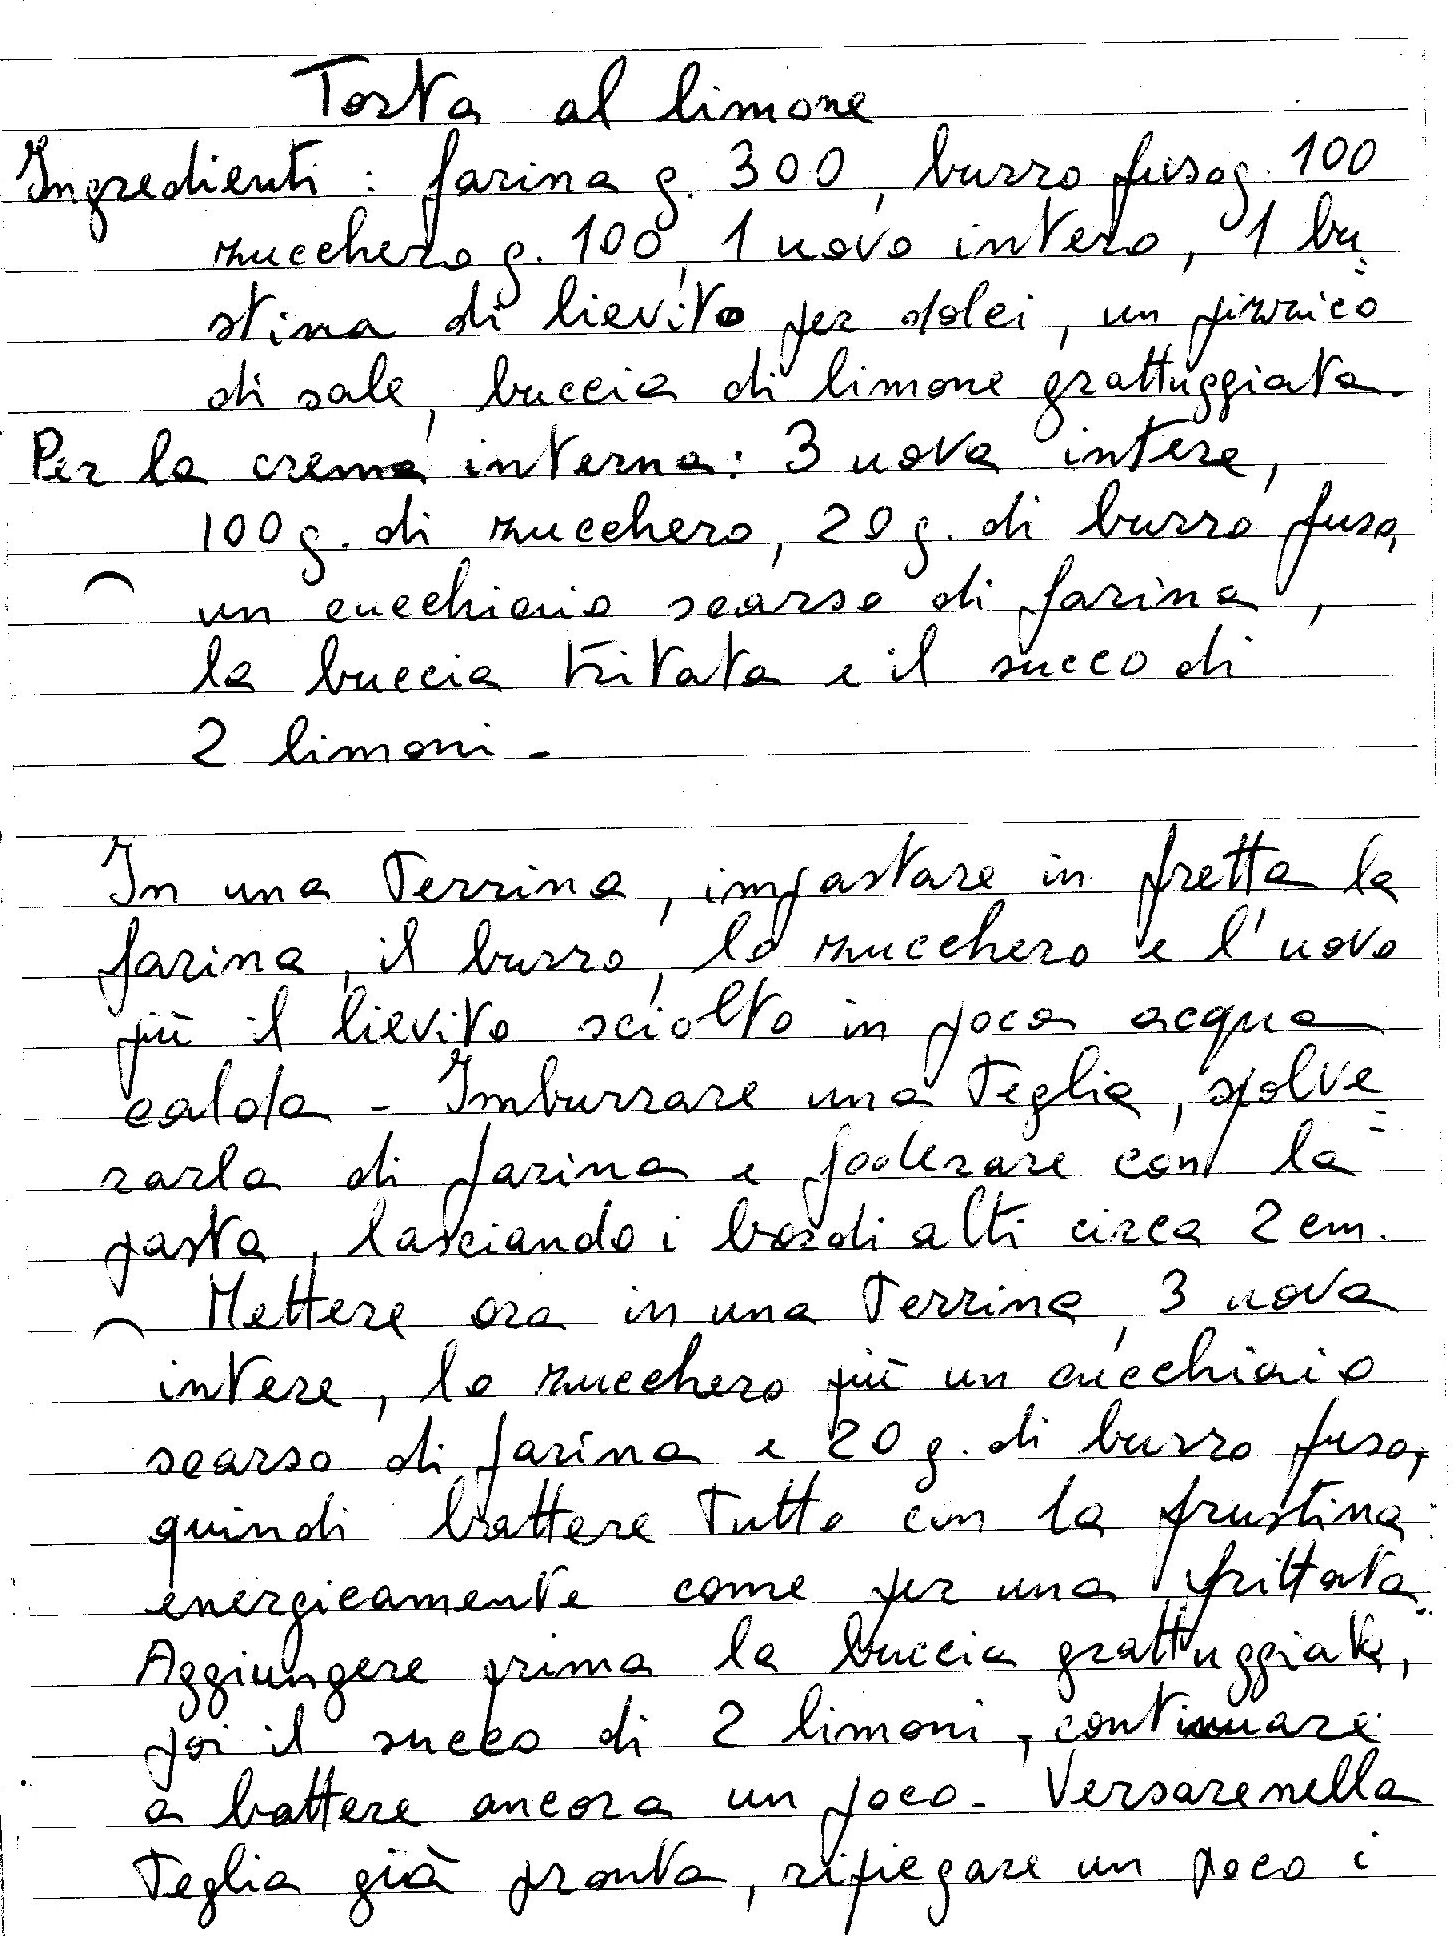 Torta al limone
Ingredienti : farina g. 300, burro fuso g. 100
zucchero g. 100, 1 uovo intero, 1 bu=
stina di lievito per dolci, un pizzico
di sale, buccia di limone grattuggiata.
Per la crema interna: 3 uova intere,
100 g. di zucchero, 20 g. di burro fuso,
un cucchiaio scarso di farina,
la buccia tritata e il succo di
2 limoni -
In una terrina, impastare in fretta la
farina, il burro, lo zucchero e l'uovo
più il lievito sciolto in poca acqua
calda - Imburrare una teglia, spolve=
rarla di farina e foderare con la
pasta, lasciando i bordi alti circa 2 cm.
Mettere ora in una terrina, 3 uova
intere, lo zucchero più un cucchiaio
scarso di farina e 20 g. di burro fuso,
quindi battere tutto con la frustina
energicamente come per una frittata.
Aggiungere prima la buccia grattuggiata,
poi il succo di 2 limoni, continuare
a battere ancora un poco. Versare nella
teglia già pronta, ripiegare un poco i